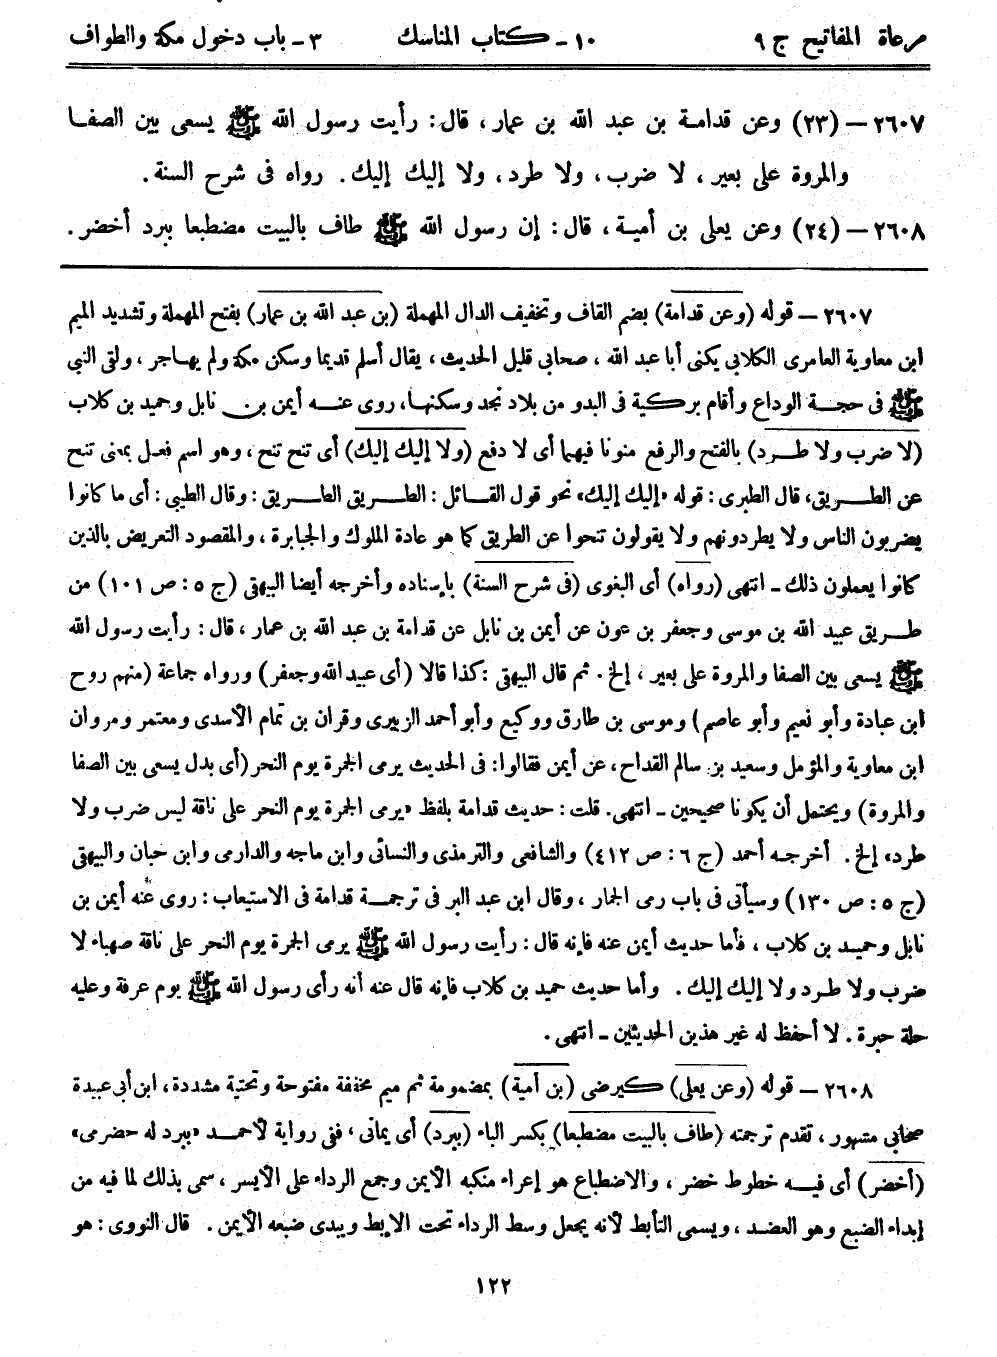 مرعاة المفاتيح ج ٩ ١٠ - كتاب المناسك ٣ - باب دخول مكة والطواف
٢٦٠٧ – (٢٣) وعن قدامة بن عبد الله بن عمار، قال: رأيت رسول الله ﷺ يسعى بين الصفا
والمروة على بعير، لا ضرب، ولا طرد، ولا إليك إليك. رواه فى شرح السنة.
٢٦٠٨ – (٢٤) وعن يعلى بن أمية، قال: إن رسول الله ﷺ طاف بالبيت مضطبعا ببرد أخضر.
٢٦٠٧ – قوله (وعن قدامة) بضم القاف وتخفيف الدال المهملة (بن عبد الله بن عمار) بفتح المهملة وتشديد الميم
ابن معاوية العامرى الكلابي يكنى أبا عبد الله، صحابي قليل الحديث، يقال أسلم قديما وسكن مكة ولم يهاجر، ولقى النبي
ﷺ فى حجة الوداع وأقام بركية فى البدو من بلاد نجد وسكنها، روى عنه أيمن بن نابل وحميد بن كلاب
(لا ضرب ولا طرد) بالفتح والرفع منونا فيهما أى لا دفع (ولا إليك إليك) أى تنح تنح، وهو اسم فعل بمعنى تنح
عن الطريق، قال الطبرى: قوله «إليك إليك» نحو قول القائل: الطريق الطريق: وقال الطيبي: أى ما كانوا
يضربون الناس ولا يطردونهم ولا يقولون تنحوا عن الطريق كما هو عادة الملوك والجبابرة، والمقصود التعريض بالذين
كانوا يعملون ذلك - انتهى (رواه) أى البغوى (فى شرح السنة) بإسناده وأخرجه أيضا البيهقى (ج ٥: ص ١٠١) من
طريق عبيد الله بن موسى وجعفر بن عون عن أيمن بن نابل عن قدامة بن عبد الله بن عمار، قال: رأيت رسول الله
ﷺ يسعى بين الصفا والمروة على بعير، إلخ. ثم قال البيهقى: كذا قالا (أى عبيد الله وجعفر) ورواه جماعة (منهم روح
ابن عبادة وأبو نعيم وأبو عاصم) وموسى بن طارق ووكيع وأبو أحمد الزبيرى وقران بن تمام الأسدى ومعتمر ومروان
ابن معاوية والمؤمل وسعيد بن سالم القداح، عن أيمن فقالوا: فى الحديث يرمى الجمرة يوم النحر (أى بدل يسعى بين الصفا
والمروة) ويحتمل أن يكونا صحيحين - انتهى. قلت: حديث قدامة بلفظ «يرمى الجمرة يوم النحر على ناقة ليس ضرب ولا
طرد» إلخ. أخرجه أحمد (ج ٦: ص ٤١٢) والشافعى والترمذى والنسائى وابن ماجه والدارمى وابن حبان والبيهقى
(ج ٥: ص ١٣٠) وسيأتى فى باب رمى الجمار، وقال ابن عبد البر فى ترجمة قدامة فى الاستيعاب: روى عنه أيمن بن
نابل وحميد بن كلاب، فأما حديث أيمن عنه فإنه قال: رأيت رسول الله ﷺ يرمى الجمرة يوم النحر على ناقة صهباء لا
ضرب ولا طرد ولا إليك إليك. وأما حديث حميد بن كلاب فإنه قال عنه أنه رأى رسول الله ﷺ يوم عرفة وعليه
حلة حبرة. لا أحفظ له غير هذين الحديثين - انتهى.
٢٦٠٨ – قوله (وعن يعلى) كيرضى (بن أمية) بمضمومة ثم ميم مخففة مفتوحة وتحتية مشددة، ابن أبي عبيدة
صحابي مشهور، تقدم ترجمته (طاف بالبيت مضطبعا) بكسر الباء (ببرد) أى يمانى، ففى رواية لأحمد «ببرد له حضرمى»
(أخضر) أى فيه خطوط خضر، والاضطباع هو إعراء منكبه الأيمن وجمع الرداء على الأيسر، سمى بذلك لما فيه من
إبداء الضبع وهو العضد، ويسمى التأبط لأنه يجعل وسط الرداء تحت الإبط ويبدى ضبعه الأيمن. قال النووى: هو
١٢٢